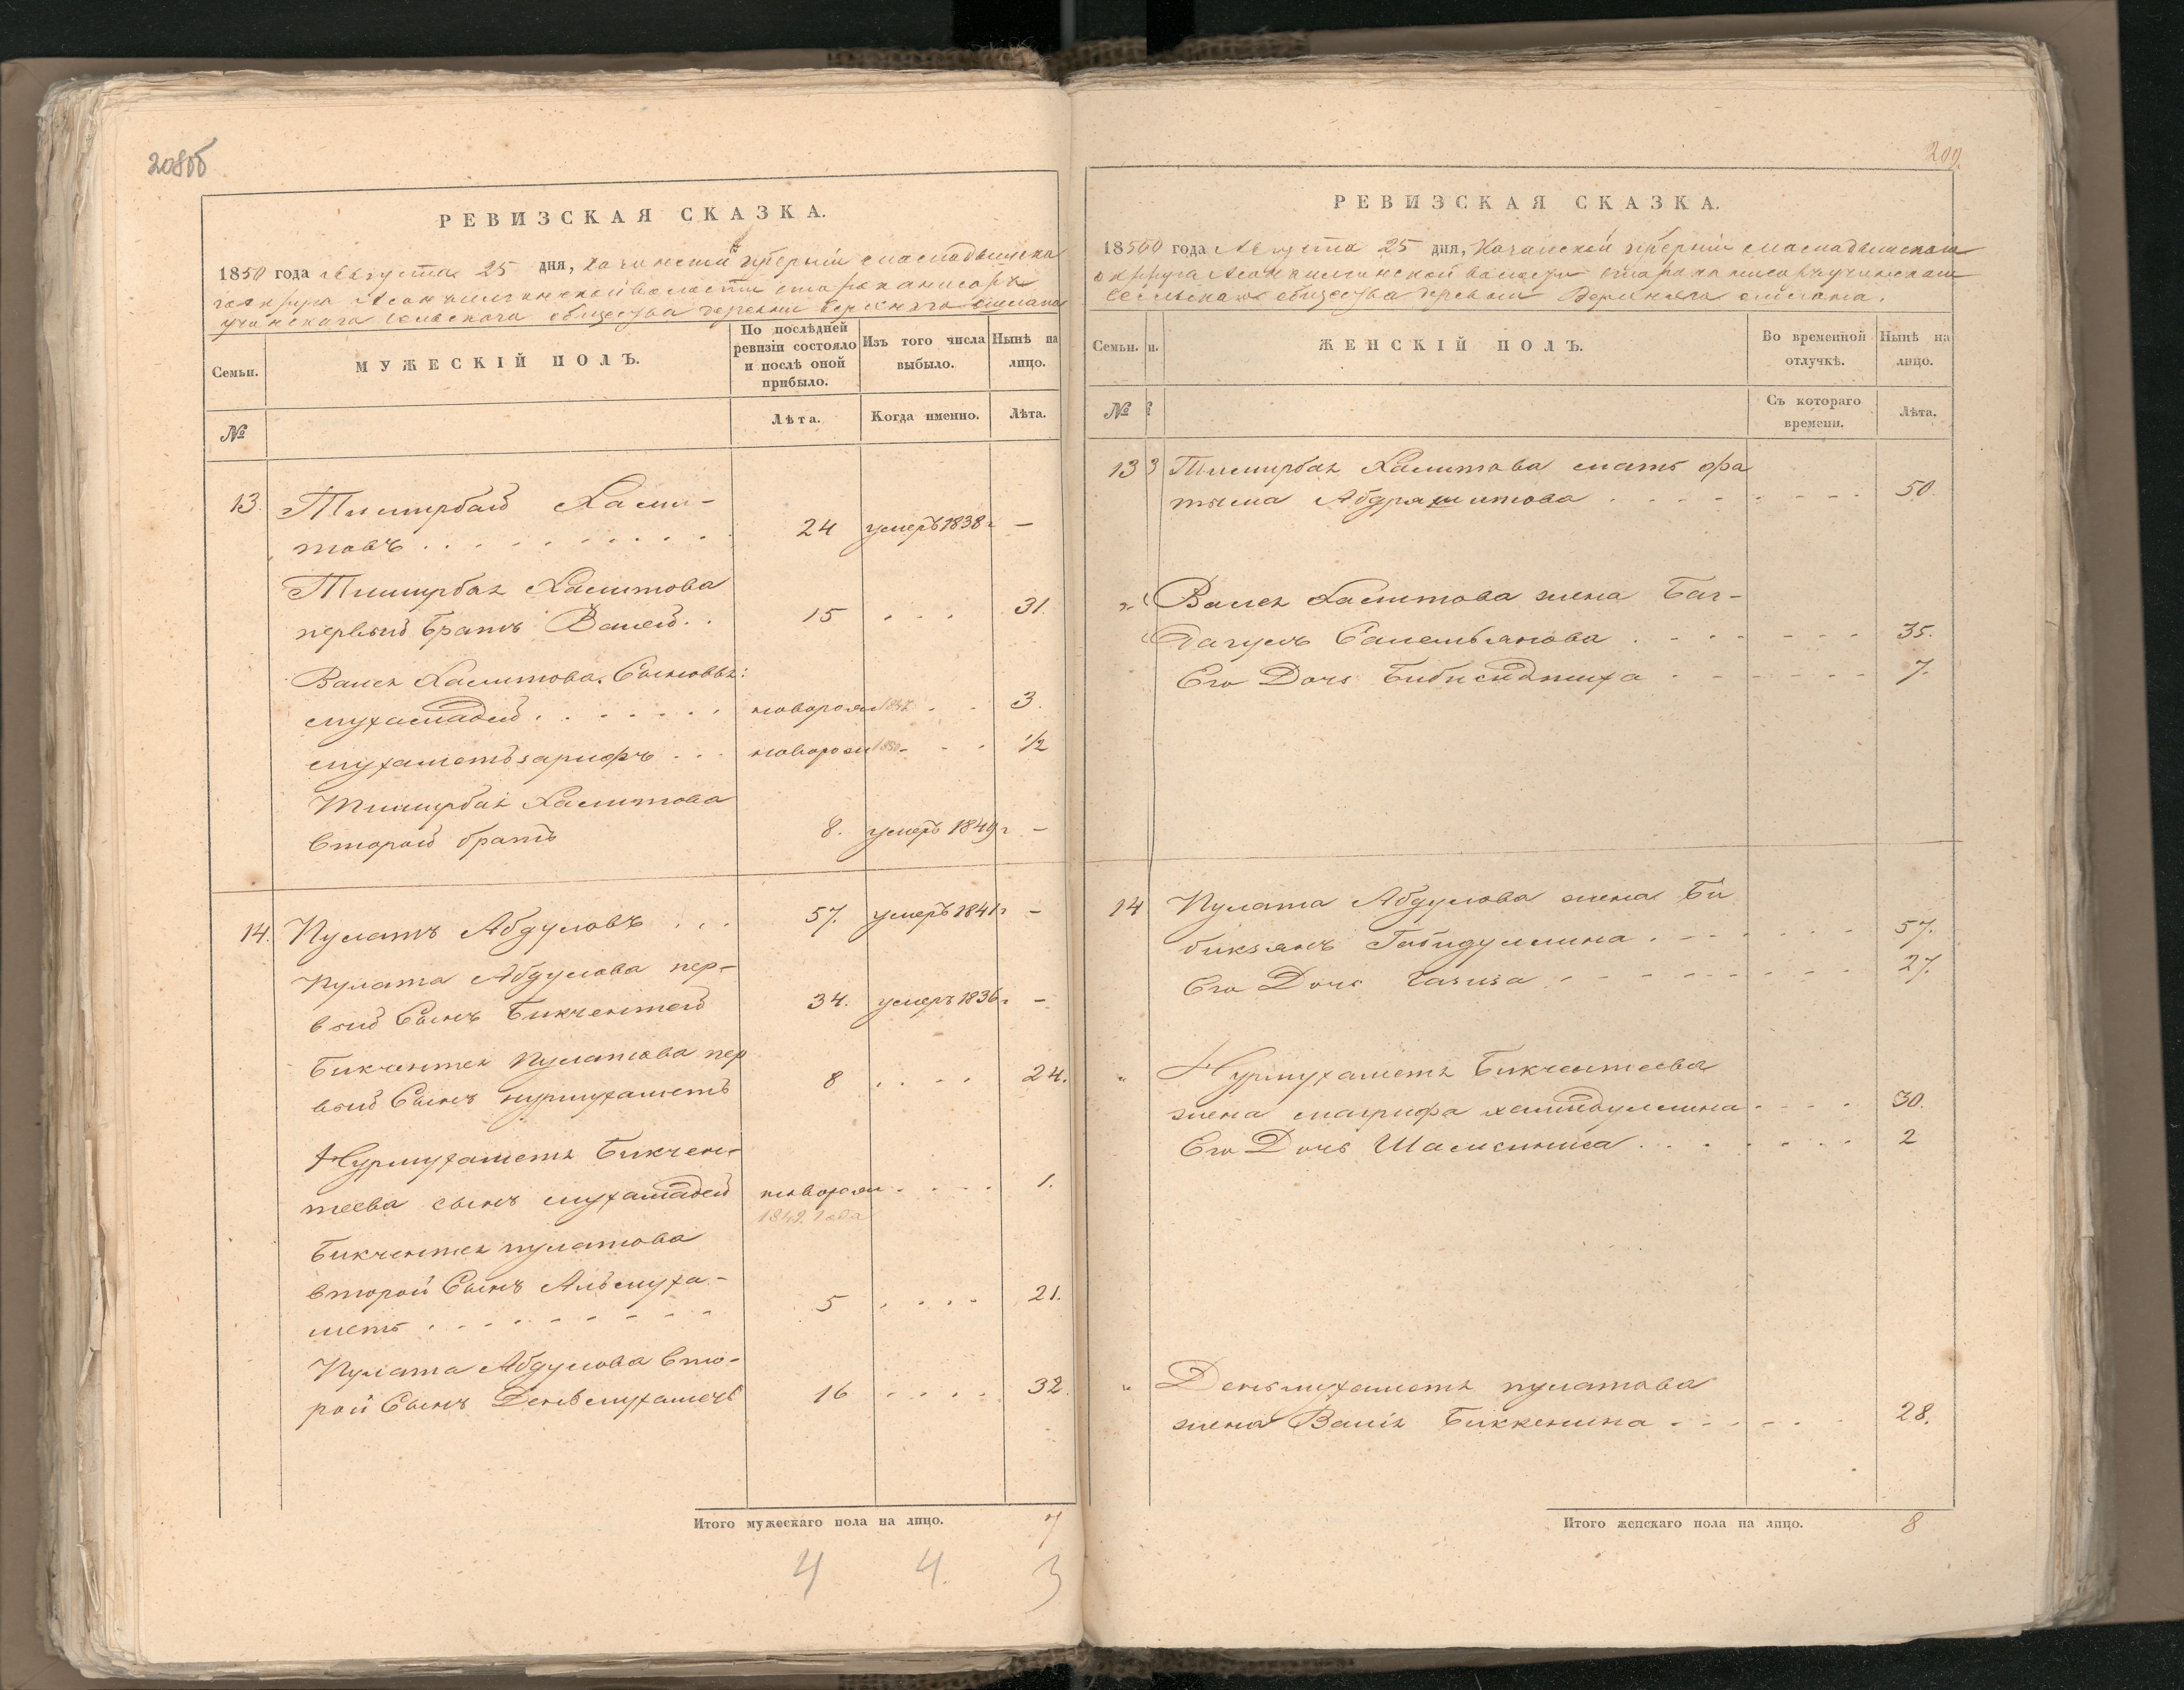 208об
РЕВИЗСКАЯ СКАЗКА.
1850 года Августа 25 дня, Казанской губерніи
волости
учинскаго сельскаго общества деревни Верхняго
Семьи.
МУЖЕСКІЙ ПОЛЪ.
По послѣдней ревизіи состояло и послѣ оной прибыло.
Изъ того числа выбыло.
Нынѣ на лицо.
№
Лѣта.
Когда именно.
Лѣта.
13. Тимирбай Хами-
товъ . . . . . . . . . . 24 умеръ 1838 г —
Тимирбая Хамитова
первый братъ Валей . . 15 . . . 31.
Валея Хамитова Сыновья:
мухамадей . . . . . . новорож 1847 . . 3.
мухаметзарифъ . . . новорож 1850 - . . 1/2
Тимирбая Хамитова
второй братъ 8. умеръ 1849 г —
14. Пулатъ Абдуловъ . . . 57. умеръ 1841 г —
Пулата Абдулова пер-
вый Сынъ Бикчентей 34. умеръ 1836 г —
Бикчентея Пулатова пер
вый Сынъ нурмухаметъ 8 . . . . 24.
Нурмухаметя Бикчен-
теева сынъ мухамадей новорож . . . . 1.
1849. года
Бикчентея пулатова
второй Сынъ Альмуха-
меть . . . . . . . . . 5 . . . . 21.
Пулата Абдулова вто-
рой Сынъ Деньмухаметь 16 . . . . 32.
Итого мужескаго пола на лицо. 7
4 4. 3
209.
РЕВИЗСКАЯ СКАЗКА.
1850 года Августа 25 дня, Казанской губерніи
округа волости
сельскаго общества деревни Верхняго
Семьи.
и.
ЖЕНСКІЙ ПОЛЪ.
Во временной отлучкѣ.
Нынѣ на лицо.
№
Съ котораго времени.
Лѣта.
13 3 Тимирбая Хамитова мать фа
тыма Абдрашитова . . . . . . . . . 50.
" Валея Хамитова жена Баг-
дагуль Самельянова . . . . . . . . 35.
Его Дочь . . . . . . . 7.
14 Пулата Абдулова жена Би
бикзянъ Габидуллина . . . . . . . . 57.
Его Дочь Газиза . . . . . . . . . 27.
" Нурмухаметя Бикчентеева
жена магрифа хамидуллина . . . . 30.
Его Дочь Шамсиниса . . . . . . . . 2
" Деньмухаметя пулатова
жена Валія Биккенина . . . . . . 28.
Итого женскаго пола на лицо. 8